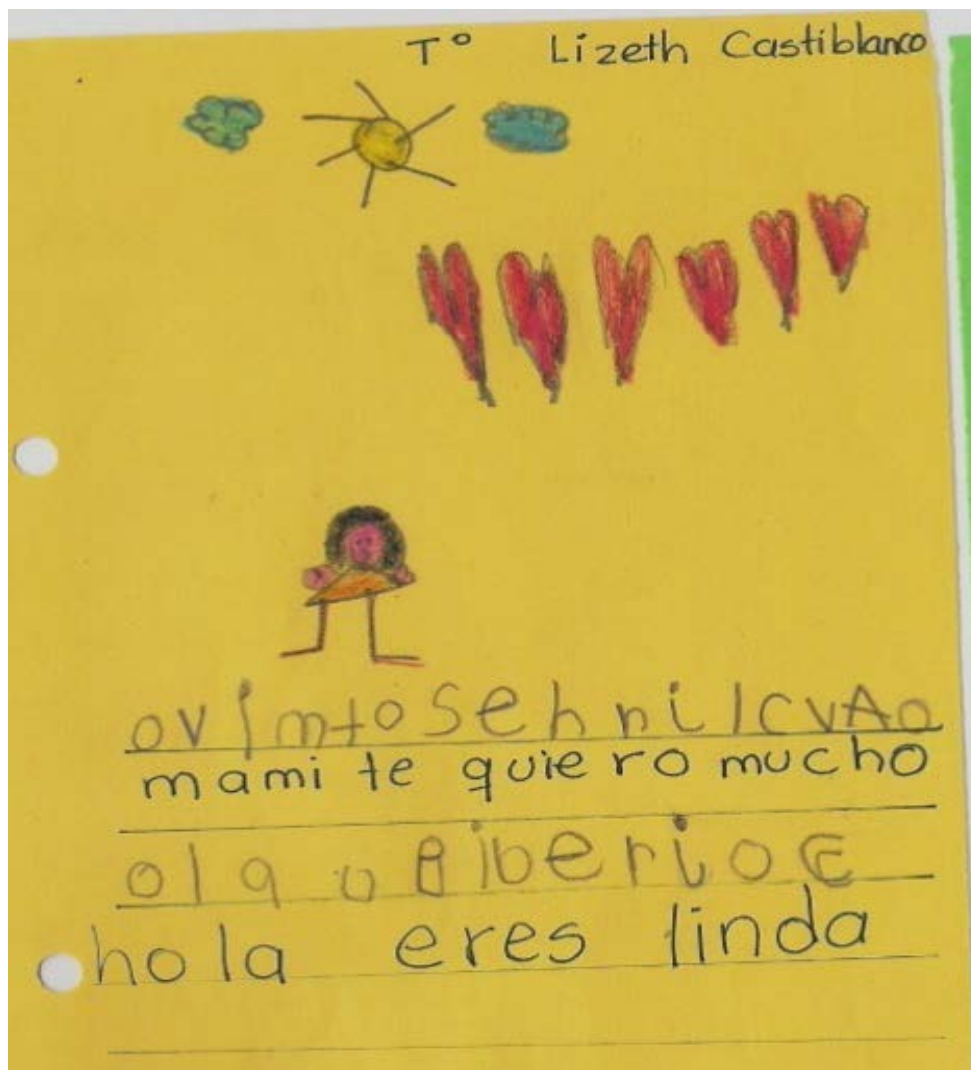 T° Lizeth Castiblanco
ovimtosehnilcvAo
mami te quiero mucho
olaueiberioe
hola eres linda